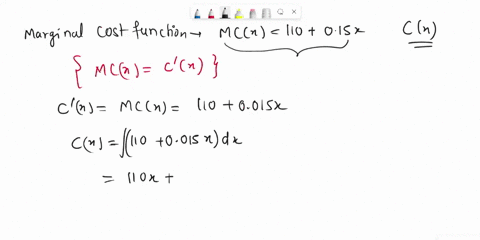 Marginal Cost function → MC(x) = 110 + 0.15x C(x)
{ MC(x) = C'(x) }
C'(x) = MC(x) = 110 + 0.015x
C(x) = ∫(110 + 0.015x) dx
= 110x +